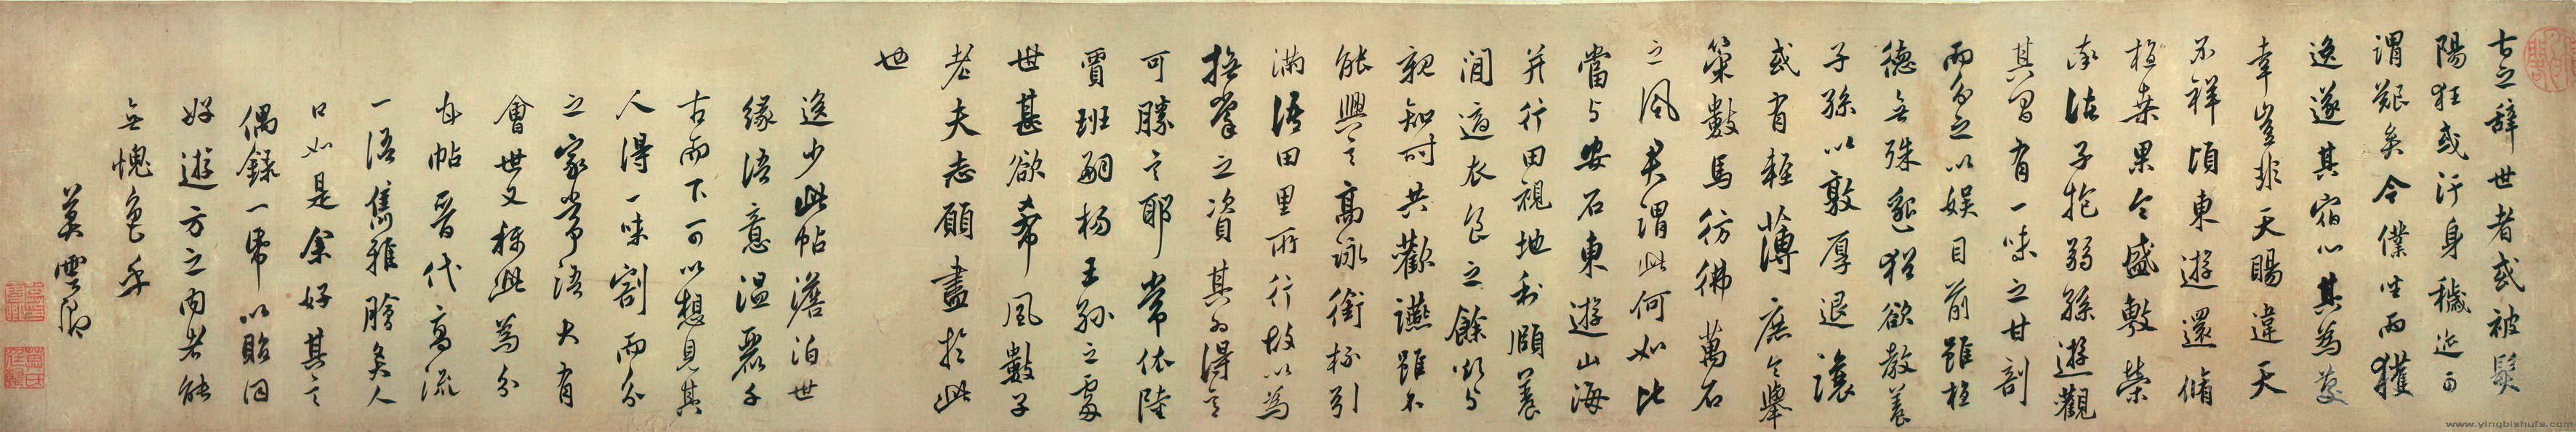 古之辞世者或被髮
陽狂或汙身穢迹可
謂艱矣今僕坐而獲
逸遂其宿心其為慶
幸豈非天賜違天
不祥頃東遊還脩
植桑果今盛敷榮
率諸子抱弱孫遊觀
其間有一味之甘割
而分之以娛目前雖植
德無殊邈猶欲教養
子孫以敦厚退讓
或有輕薄庶令舉
策數馬彷彿萬石
之風君謂此何如比
當与安石東遊山海
并行田視地利頤養
閒適衣食之餘欲与
親知時共歡讌雖不
能興言高詠銜杯引
滿語田里所行故以為
撫掌之資其為得意
可勝言耶常依陸
賈班嗣楊王孫之處
世甚欲希風數子
老夫志願盡於此
也
逸少此帖澹泊世
緣語意温麗千
古而下可以想見其
人得一味割而分
之家常語大有
會世又稱此為分
甘帖晉代高流
一語雋雅膾炙人
口如是余好其言
偶錄一帋以貽同
好遊方之內者能
無愧色乎
莫雲卿
www.yingbishufa.com